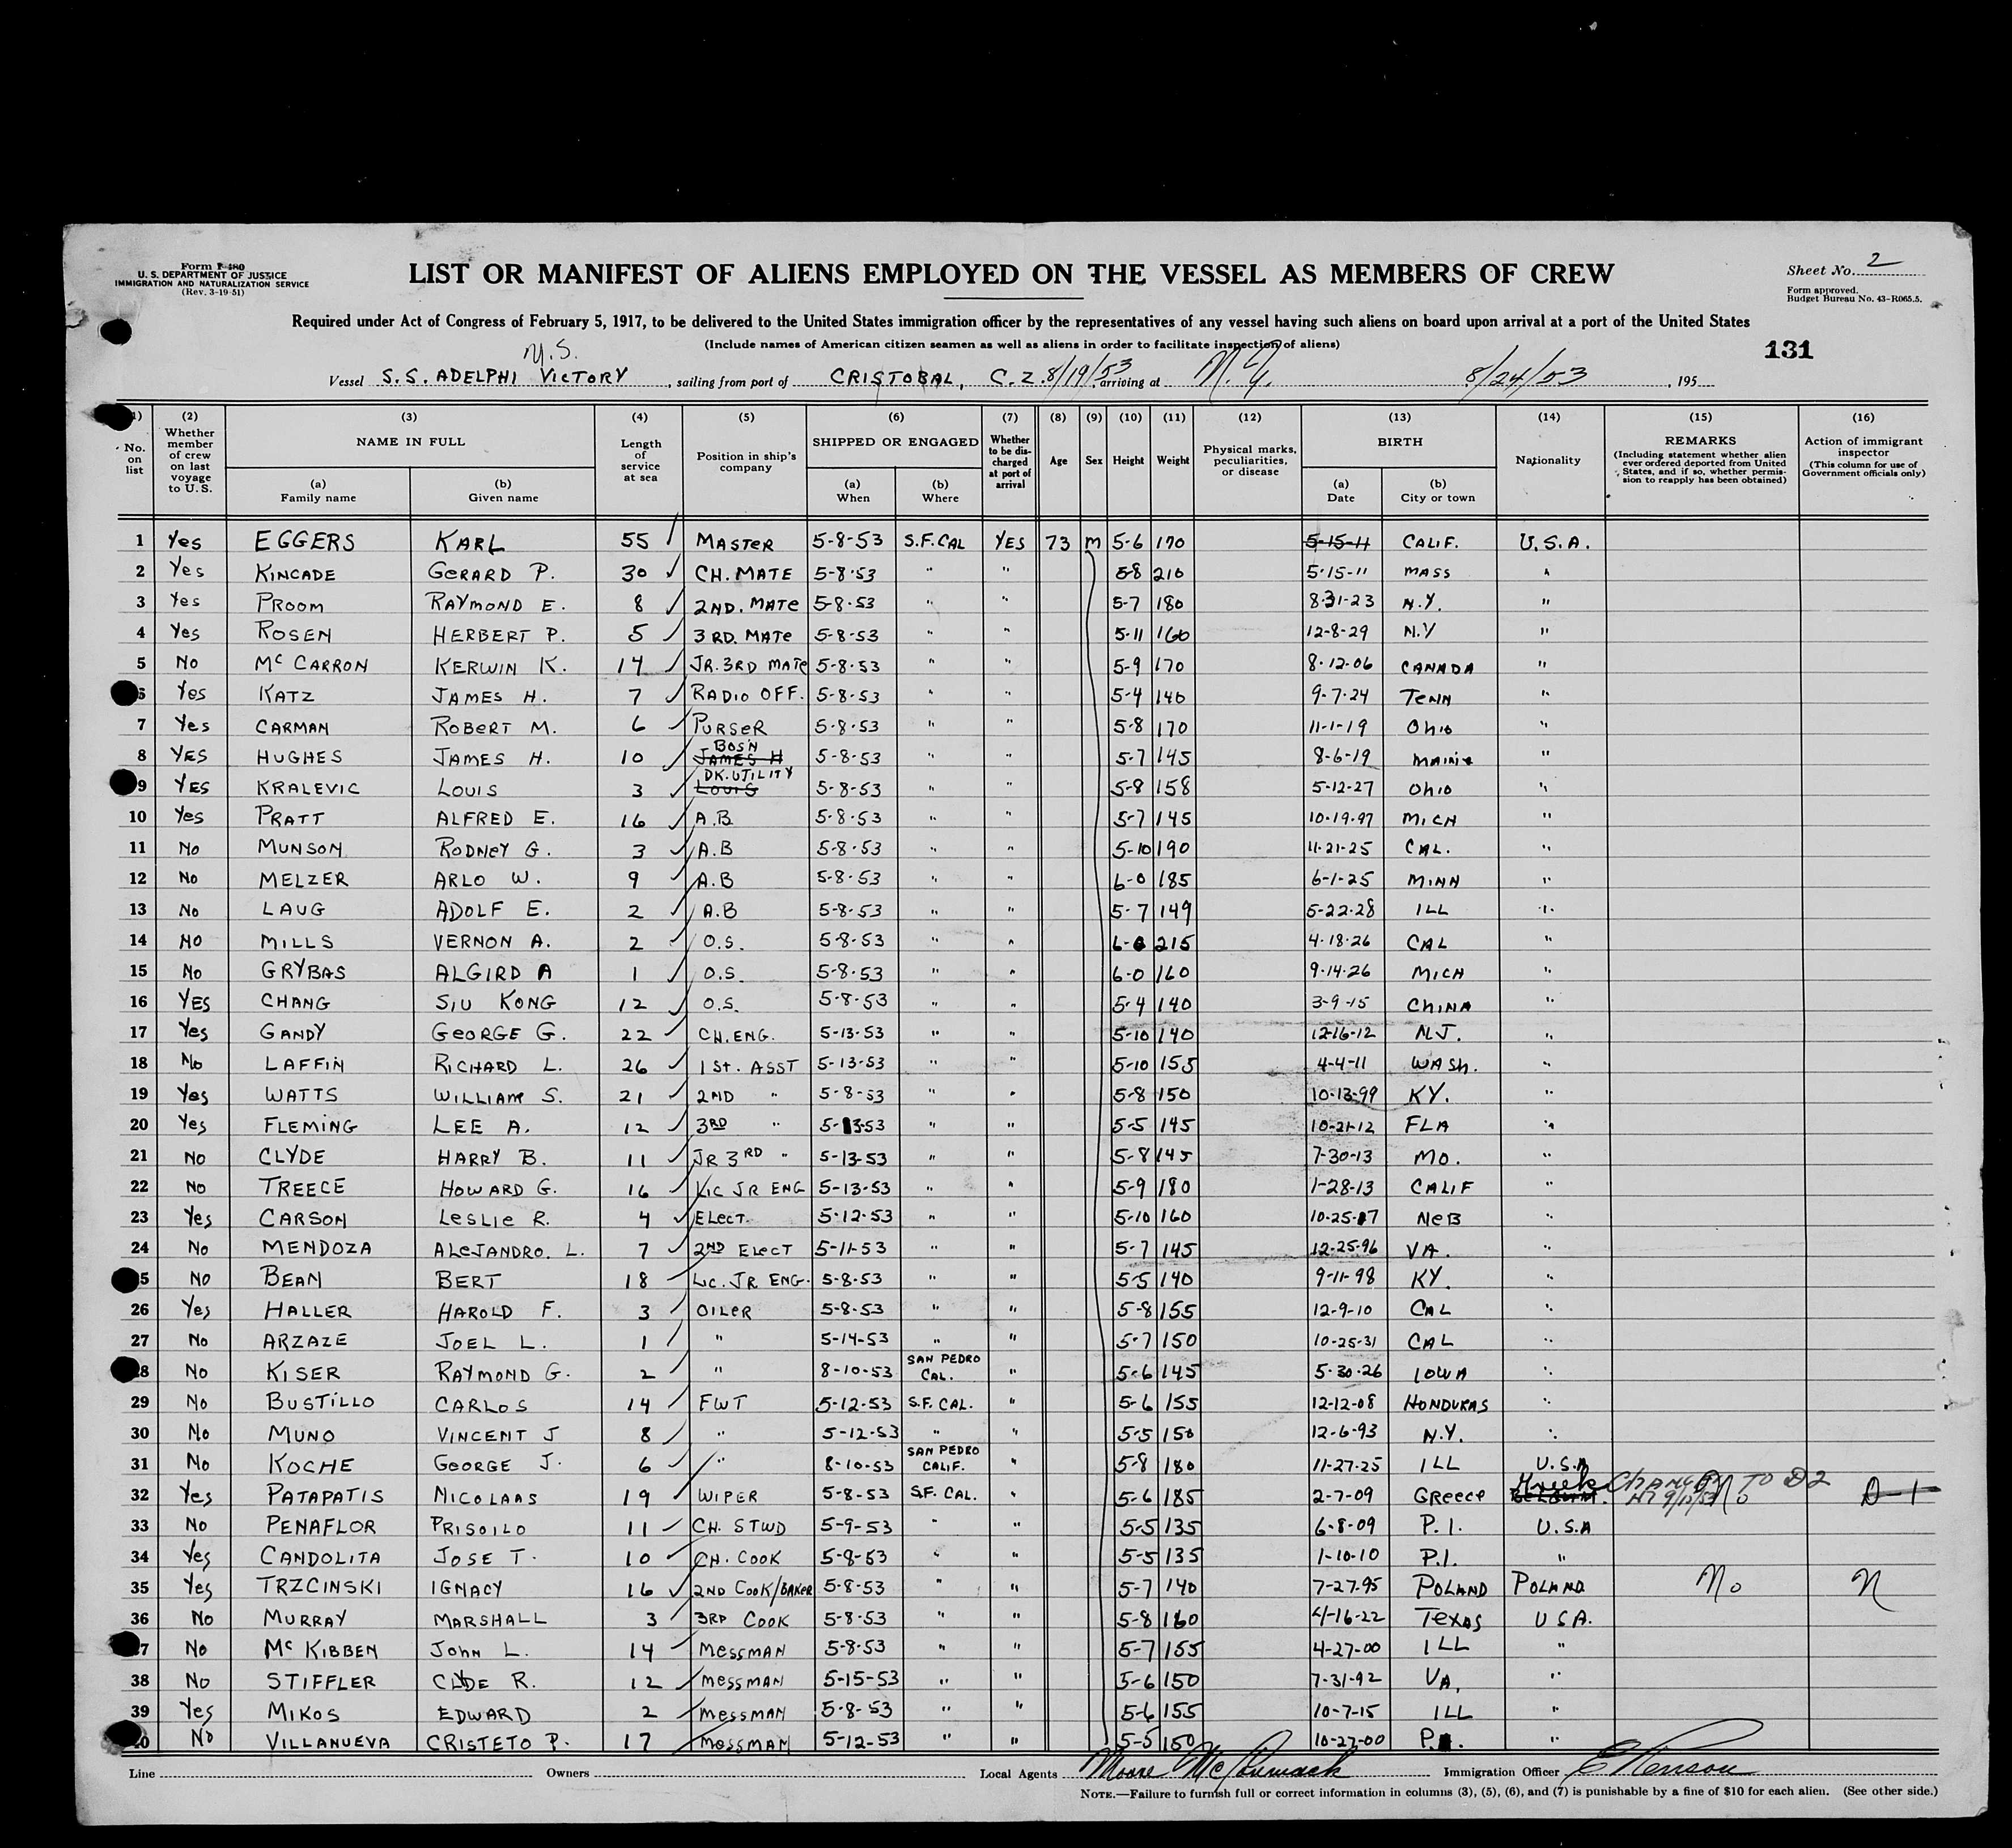 Form I-480
U. S. DEPARTMENT OF JUSTICE
IMMIGRATION AND NATURALIZATION SERVICE
(Rev. 3-19-51)
LIST OR MANIFEST OF ALIENS EMPLOYED ON THE VESSEL AS MEMBERS OF CREW
Sheet No. 2
Form approved.
Budget Bureau No. 43-R065.5.
Required under Act of Congress of February 5, 1917, to be delivered to the United States immigration officer by the representatives of any vessel having such aliens on board upon arrival at a port of the United States
(Include names of American citizen seamen as well as aliens in order to facilitate inspection of aliens)
131
Vessel S.S. ADELPHI VICTORY, sailing from port of CRISTOBAL, C.Z. 8/19/53, arriving at N.Y. 8/24/53, 195
(1) (2) (3) (4) (5) (6) (7) (8) (9) (10) (11) (12) (13) (14) (15) (16)
No. on list
Whether member of crew on last voyage to U. S.
NAME IN FULL
(a) Family name
(b) Given name
Length of service at sea
Position in ship's company
SHIPPED OR ENGAGED
(a) When
(b) Where
Whether to be discharged at port of arrival
Age
Sex
Height
Weight
Physical marks, peculiarities, or disease
BIRTH
(a) Date
(b) City or town
Nationality
REMARKS
(Including statement whether alien ever ordered deported from United States, and if so, whether permission to reapply has been obtained)
Action of immigrant inspector
(This column for use of Government officials only)
1 Yes EGGERS KARL 55 MASTER 5-8-53 S.F. CAL YES 73 M 5-6 170 5-15-11 CALIF. U.S.A.
2 Yes KINCADE GERARD P. 30 CH. MATE 5-8-53 " " 5-8 210 5-15-11 MASS "
3 Yes PROOM RAYMOND E. 8 2ND. MATE 5-8-53 " " 5-7 180 8-31-23 N.Y. "
4 Yes ROSEN HERBERT P. 5 3RD. MATE 5-8-53 " " 5-11 160 12-8-29 N.Y "
5 No McCARRON KERWIN K. 14 JR. 3RD MATE 5-8-53 " " 5-9 170 8-12-06 CANADA "
6 Yes KATZ JAMES H. 7 RADIO OFF. 5-8-53 " " 5-4 140 9-7-24 TENN "
7 Yes CARMAN ROBERT M. 6 PURSER 5-8-53 " " 5-8 170 11-1-19 OHIO "
8 YES HUGHES JAMES H. 10 JAMES H BOSN 5-8-53 " " 5-7 145 8-6-19 MAINE "
9 YES KRALEVIC LOUIS 3 LOUIS DK. UTILITY 5-8-53 " " 5-8 158 5-12-27 OHIO "
10 Yes PRATT ALFRED E. 16 A.B 5-8-53 " " 5-7 145 10-19-97 MICH "
11 No MUNSON RODNEY G. 3 A.B 5-8-53 " " 5-10 190 11-21-25 CAL. "
12 No MELZER ARLO W. 9 A.B 5-8-53 " " 6-0 185 6-1-25 MINN "
13 No LAUG ADOLF E. 2 A.B 5-8-53 " " 5-7 149 5-22-28 ILL "
14 NO MILLS VERNON A. 2 O.S. 5-8-53 " " 6-0 215 4-18-26 CAL "
15 No GRYBAS ALGIRD A 1 O.S. 5-8-53 " " 6-0 160 9-14-26 MICH "
16 YES CHANG SIU KONG 12 O.S. 5-8-53 " " 5-4 140 3-9-15 CHINA "
17 Yes GANDY GEORGE G. 22 CH. ENG. 5-13-53 " " 5-10 140 12-16-12 N.J. "
18 No LAFFIN RICHARD L. 26 1ST. ASST 5-13-53 " " 5-10 155 4-4-11 WASH. "
19 Yes WATTS WILLIAM S. 21 2ND " 5-8-53 " " 5-8 150 10-13-99 KY. "
20 Yes FLEMING LEE A. 12 3RD " 5-13-53 " " 5-5 145 10-21-12 FLA "
21 NO CLYDE HARRY B. 11 JR 3RD " 5-13-53 " " 5-8 145 7-30-13 MO. "
22 NO TREECE HOWARD G. 16 LIC JR ENG 5-13-53 " " 5-9 180 1-28-13 CALIF "
23 Yes CARSON LESLIE R. 4 ELECT. 5-12-53 " " 5-10 160 10-25-17 NEB "
24 No MENDOZA ALEJANDRO. L. 7 2ND ELECT 5-11-53 " " 5-7 145 12-25-96 VA. "
25 NO BEAN BERT 18 LIC. JR ENG. 5-8-53 " " 5-5 140 9-11-98 KY. "
26 Yes HALLER HAROLD F. 3 OILER 5-8-53 " " 5-8 155 12-9-10 CAL "
27 No ARZAZE JOEL L. 1 " 5-14-53 " " 5-7 150 10-25-31 CAL "
28 No KISER RAYMOND G. 2 " 8-10-53 SAN PEDRO CAL. " 5-6 145 5-30-26 IOWA "
29 No BUSTILLO CARLOS 14 FWT 5-12-53 S.F. CAL. " 5-6 155 12-12-08 HONDURAS "
30 No MUNO VINCENT J 8 " 5-12-53 " " 5-5 150 12-6-93 N.Y. "
31 No KOCHE GEORGE J. 6 " 8-10-53 SAN PEDRO CALIF. " 5-8 180 11-27-25 ILL U.S.A
32 Yes PATAPATIS NICOLAAS 19 WIPER 5-8-53 S.F. CAL. " 5-6 185 2-7-09 GREECE Greek Changed TO D2 No D-1
33 No PENAFLOR PRISOILO 11 CH. STWD 5-9-53 " " 5-5 135 6-8-09 P.I. U.S.A
34 Yes CANDOLITA JOSE T. 10 CH. COOK 5-8-53 " " 5-5 135 1-10-10 P.I. "
35 Yes TRZCINSKI IGNACY 16 2ND COOK/BAKER 5-8-53 " " 5-7 140 7-27-95 POLAND POLAND No N
36 No MURRAY MARSHALL 3 3RD COOK 5-8-53 " " 5-8 160 4-16-22 TEXAS U S A.
37 No McKIBBEN JOHN L. 14 MESSMAN 5-8-53 " " 5-7 155 4-27-00 ILL "
38 No STIFFLER CLYDE R. 12 MESSMAN 5-15-53 " " 5-6 150 7-31-92 VA. "
39 Yes MIKOS EDWARD 2 MESSMAN 5-8-53 " " 5-6 155 10-7-15 ILL "
40 No VILLANUEVA CRISTETO P. 17 MESSMAN 5-12-53 " " 5-5 150 10-27-00 P.I. "
Line Owners Local Agents Moore McCormack Immigration Officer
NOTE.—Failure to furnish full or correct information in columns (3), (5), (6), and (7) is punishable by a fine of $10 for each alien. (See other side.)